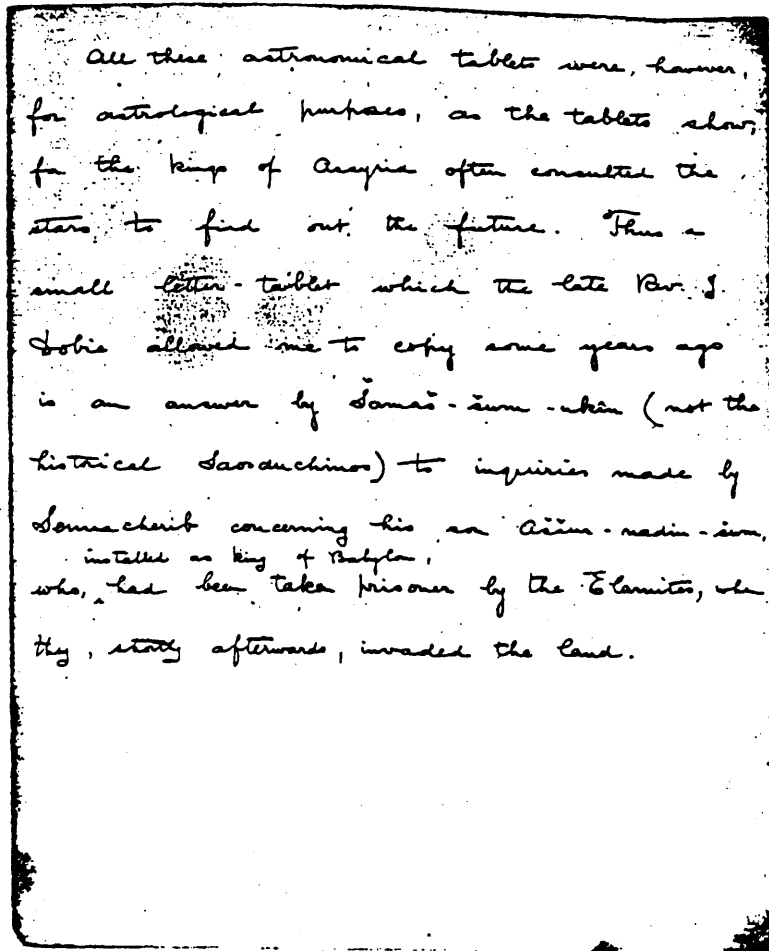 All these astronomical tablets were, however,
for astrological purposes, as the tablets show,
for the kings of Assyria often consulted the
stars to find out the future. Thus a
small letter-tablet which the late Rev. J.
Dobie allowed me to copy some years ago
is an answer by Šamaš-šum-ukîn (not the
histrical Saosduchinos) to inquiries made by
Sennacherib concerning his son Aššur-nadin-šum,
installed as king of Babylon,
who, ‸ had been taken prisoner by the Elamites, when
they, shortly afterwards, invaded the land.